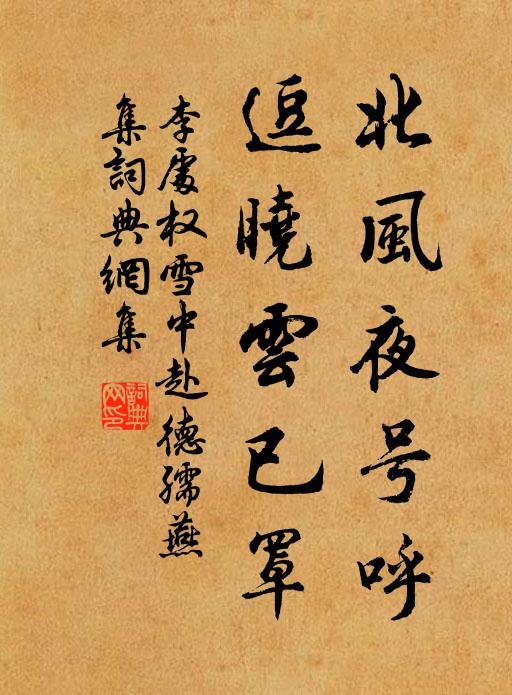 北風夜号呼
逗曉雲已罩
李處权雪中赴德孺燕
集詞典網集
詞典
网印